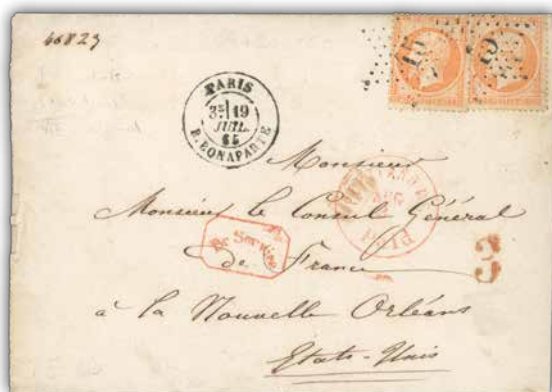 46823
15 15
PARIS
3E 19
JUIL.
65
R. BONAPARTE
Monsieur
Monsieur le Consul Général
de France
à la Nouvelle Orléans
Etats-Unis
PAID
33